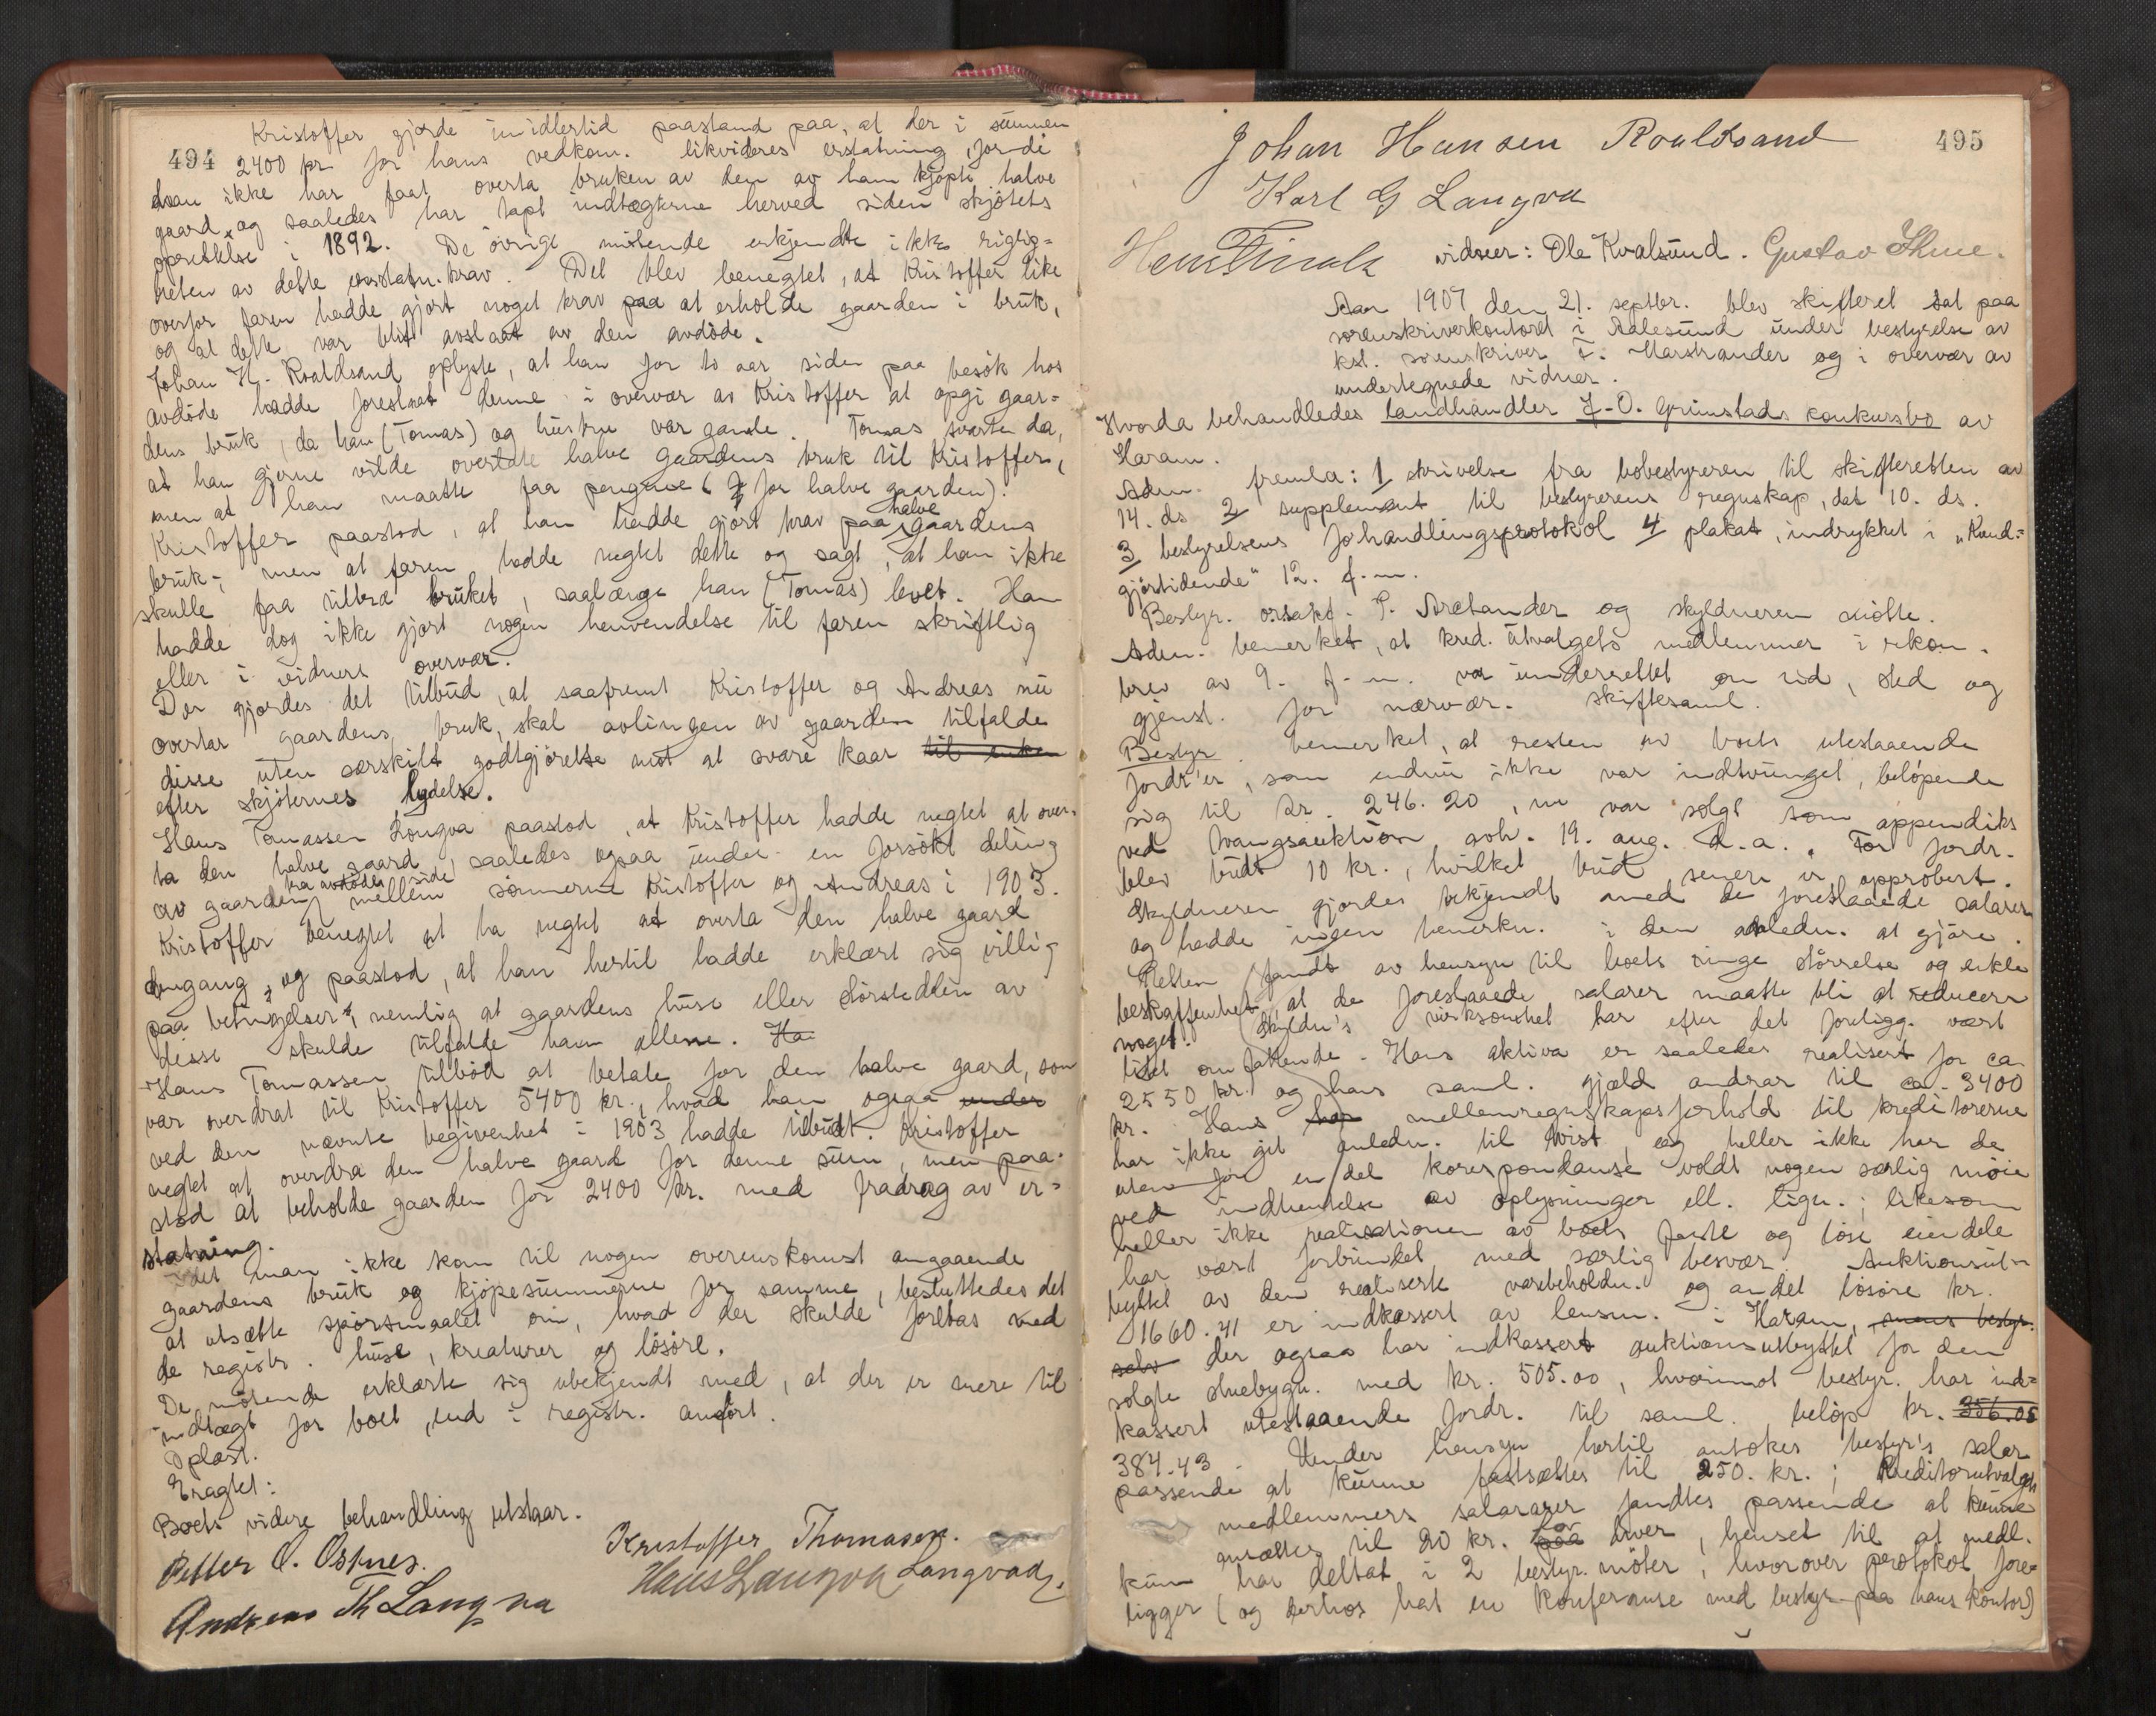 494
Kristoffer gjorde imidlertid paastand paa, at der i summen
2400 kr for hans vedkom. likvideres erstatning, fordi
han ikke har faat overta bruken av den av ham kjøpte halve
gaard, og saaledes har tapt indtægterne herved siden skjøtets
oprettelse i 1892. De øvrige møtende erkjendte ikke rigtig-
heten av dette erstatn.krav. Det blev benegtet, at Kristoffer like
overfor faren hadde gjort noget krav paa at erholde gaarden i bruk,
og at dette var blit avslaat av den avdøde.
Johan H. Roaldsand oplyste, at han for to aar siden paa besøk hos
avdøde hadde foreslaat denne i overvær av Kristoffer at opgi gaar-
dens bruk, da han (Tomas) og hustru var gamle. Tomas svarte da,
at han gjerne vilde overlate halve gaardens bruk til Kristoffer,
men at han maatte faa pengene (for halve gaarden).
Kristoffer paastod, at han hadde gjort krav paa halve gaardens
bruk; men at faren hadde negtet dette og sagt, at han ikke
skulle faa tiltræ bruket, saalænge han (Tomas) levet. Han
hadde dog ikke gjort nogen henvendelse til faren skriftlig
eller i vidners overvær.
Der gjordes det tilbud, at saafremt Kristoffer og Andreas nu
overtar gaardens bruk, skal avlingen av gaarden tilfalde
disse uten særskilt godtgjørelse mot at svare kaar til enken
efter skjøternes lydelse.
Hans Tomassen Longva paastod, at Kristoffer hadde negtet at over-
ta den halve gaard, saaledes ogsaa under en forsøkt deling
av gaarden fra avdødes side mellem sønnerne Kristoffer og Andreas i 1903.
Kristoffer benegtet at ha negtet at overta den halve gaard
dengang, og paastod, at han hertil hadde erklært sig villig
paa betingelser, nemlig at gaardens huse eller størstedelen av
disse skulde tilfalde ham allene. Ha
Hans Tomassen tilbød at betale for den halve gaard, som
var overdrat til Kristoffer 5400 kr., hvad han ogsaa under
ved den nævnte begivenhet i 1903 hadde tilbudt. Kristoffer
negtet at overdra den halve gaard for denne sum, men paa-
stod at beholde gaarden for 2400 kr. med fradrag av er-
statning.
Idet man ikke kom til nogen overenskomst angaaende
gaardens bruk og kjøpesummerne for samme, besluttedes det
at utsætte spørsmaalet om, hvad der skulde foretas med
de registr. huse, kreaturer og løsøre.
De møtende erklærte sig ubekjendt med, at der er mere til
indtægt for boet, end i registr. anført.
Oplæst.
Eragtet:
Boets videre behandling utstaar.
Petter O. Ostnes.
Kristoffer Thomasen.
Andreas Th Langva
Hans Langva Langvad
495
Johan Hansen Roaldsand
Karl G Langva
vidner: Ole Kvalsund. Gustav Thue.
Aar 1907 den 21. septbr. blev skifteret sat paa
sorenskriverkontoret i Aalesund under bestyrelse av
kst. sorenskriver F. Marstrander og i overvær av
undertegnede vidner.
Hvorda behandledes landhandler J. O. Grimstads konkursbo av
Haram.
Adm. fremla: 1 skrivelse fra bobestyreren til skifteretten av
14. ds 2 supplement til bestyrerens regnskap, dat 10. ds.
3 bestyrelsens forhandlingsprotokol 4 plakat, indrykket i „Kund-
gjørtidende“ 12. f. m.
Bestyr. orsakf. P. Aretander og skyldneren møtte.
Adm. bemerket, at kred.utvalgets medlemmer i rekom.
brev av 9. f. m. var underrettet om tid, sted og
gjenst. for nærvær. skiftesaml.
Bestyr bemerket, at resten av boets utestaaende
fordr'er, som endnu ikke var indtvunget, beløpende
sig til kr. 246.20, nu var solgt som appendiks
ved tvangsauktion avh. 19. aug. d. a. For fordr.
blev budt 10 kr., hvilket bud senere er approbert.
Skyldneren gjordes bekjendt med de foreslaaede salarer
og hadde ingen bemerkn. i den anledn. at gjøre.
Retten fandt av hensyn til boets ringe størrelse og enkle
beskaffenhet, at de foreslaaede salarer maatte bli at reducere
noget. Skyldn's virksomhet har efter det foreligg. vært
litet omfattende. Hans aktiva er saaledes realisert for ca.
2550 kr. og hans saml. gjæld andrar til ca. 3400
kr. Hans har mellemregnskapsforhold til kreditorerne
har ikke git anledn. til tvist og heller ikke har de
uten for en del korrespondanse voldt nogen særlig møie
ved indhentelse av oplysninger ell. lign.; likesom
heller ikke realisationen av boets faste og løse eiendele
har vært forbundet med særlig besvær. Auktionsut-
byttet av den realiserte varebeholdn. og andet løsøre kr.
1660.41 er indkassert av lensm. i Haram, mens bestyr.
selv der ogsaa har indkassert auktionsutbyttet for den
solgte stuebygn. med kr. 505.00, hvorimot bestyr. har ind-
kassert utestaaende fordr. til saml. beløp kr. 356.05
384.43. Under hensyn hertil antokes bestyr's salær
passende at kunne fastsættes til 250. kr.; Kreditorutvalgets
medlemmers salarer fandtes passende at kunne
ansættes til 20 kr. for hver, henset til at medl.
kun har deltat i 2 bestyr.møter, hvorover protokol fore-
ligger (og derhos hat en konferanse med bestyr paa hans kontor)